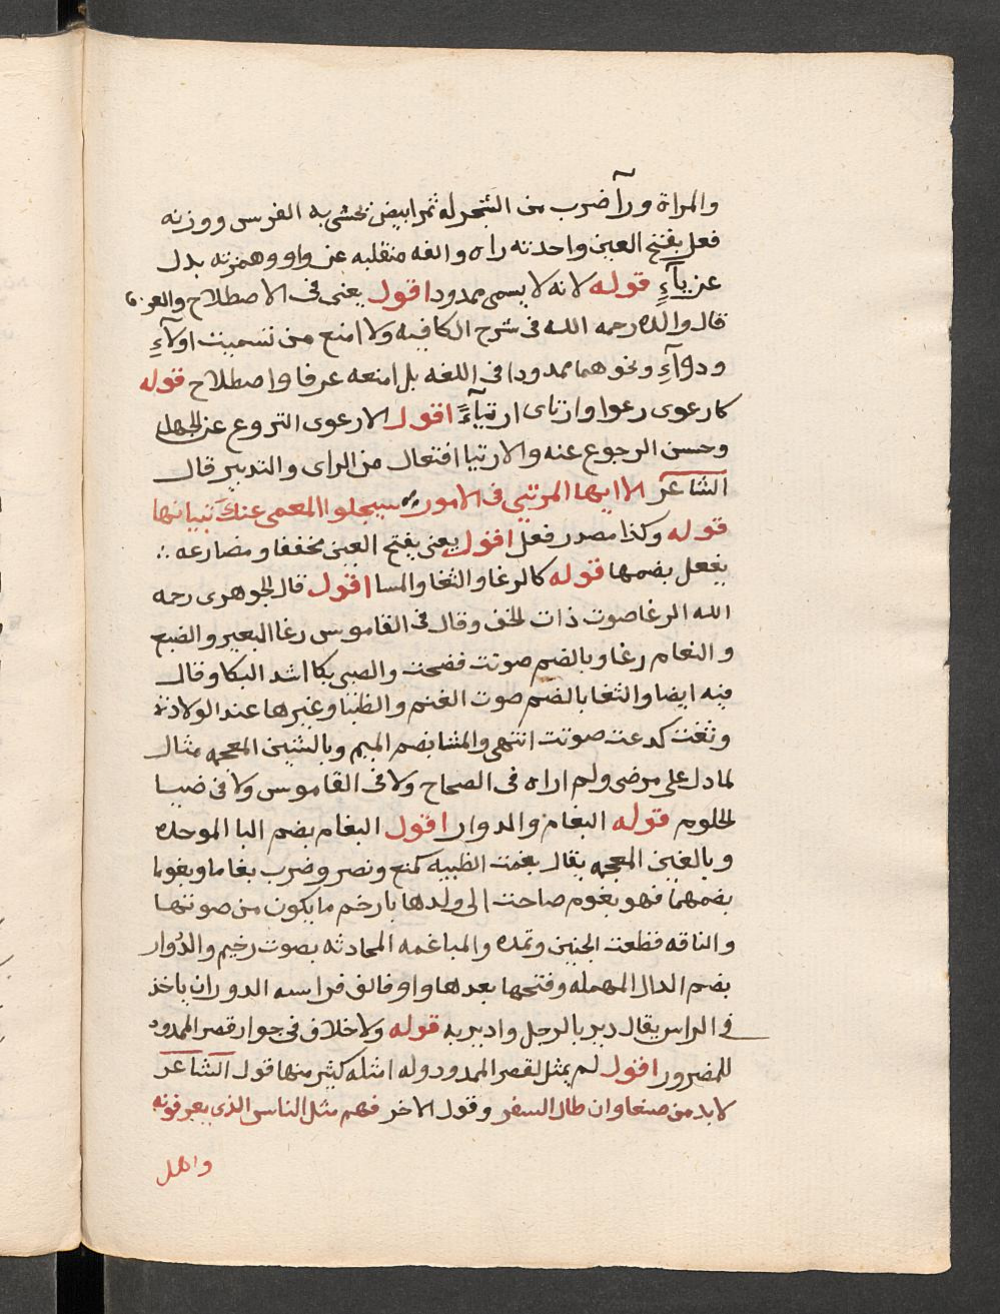 والمراة ورآ ضرب من الشجر له ثمر ابيض تحشى به الفرس ووزنه
فعل بفتح العين واحدته راه والفه منقلبه عن واو وهمزته بدل
عن يآءٍ قوله لانه لا يسمى ممدودا اقول يعنى فى الاصطلاح والعر
قال والده رحمه الله فى شرح الكافيه ولا امنع من تسميت اولآءِ
ودوآءِ ونحوهما ممدودا فى اللغه بل امنعه عرفا واصطلاح قوله
كارعوى رعوا وارتاى ارتيآءً اقول الارعوى النزوع عن الجهل
وحسن الرجوع عنه والارتيا افتعال من الراى والتدبير قال
الشاعر الا ايها المرتيى فى الامور سيجلوا المعمى عنك تبيانها
قوله وكذا مصدر فعل اقول يعنى بفتح العين مخففا ومضارعه
يفعل بضمها قوله كالرغا والثغا والمسا اقول قال الجوهرى رحمه
الله الرغا صوت ذات الخف وقال فى القاموس رغا البعير والضبع
والنعام رغا وبالضم صوتت فضجت والصبى بكا اشد البكا وقال
فيه ايضا والثغا بالضم صوت الغنم والظبا وغيرها عند الولادة
وثغت كدعت صوتت انتهى والمشا بضم الميم وبالشين المعجمه مثال
لما دل على مرض ولم اراه فى الصحاح ولا فى القاموس ولا فى ضيا
الحلوم قوله البغام والدوار اقول البغام بضم البا الموحده
وبالغين المعجمه يقال بغمت الظبيه كمنع ونصر وضرب بغاما وبغوما
بضمهما فهو بغوم صاحت الى ولدها بارخم ما يكون من صوتها
والناقه قطعت الحنين وتمده والمباغمه المحادثه بصوت رخيم والدُوار
بضم الدال المهمله وفتحها بعدها واو فالف فرا سه الدوران ياخذ
فى الراس يقال دير بالرجل وادير به قوله ولا خلاف فى جواز قصر الممدود
للمضرور اقول لم يمثل لقصر الممدود وله امثله كثير منها قول الشاعر
لابد من صنعا وان طال السفر وقول الاخر فهم مثل الناس الذى يعرفونه
واهل